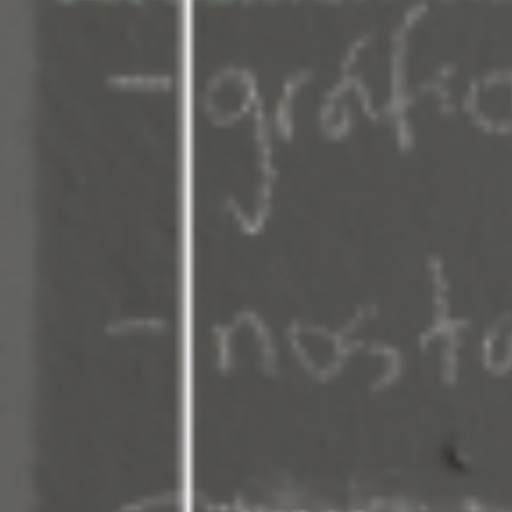 - gráfic
- nosta